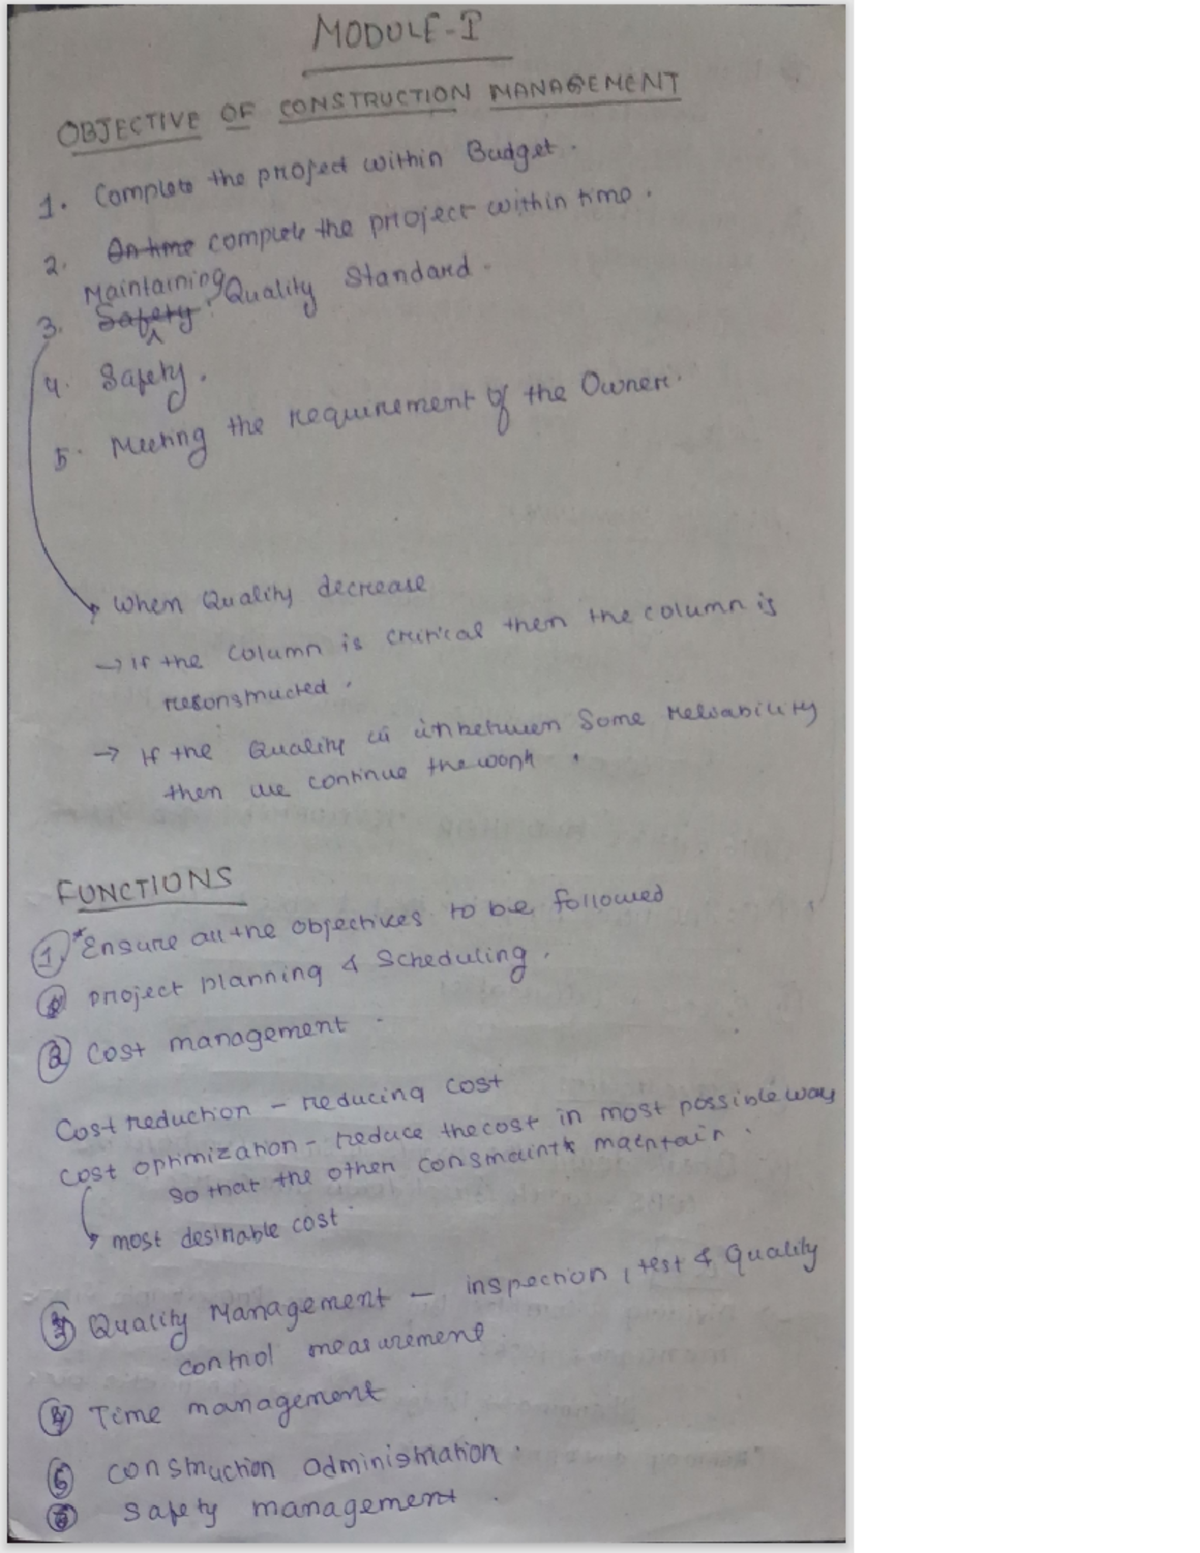 MODULE-I
OBJECTIVE OF CONSTRUCTION MANAGEMENT
1. Complete the project within Budget.
2. On time complete the project within time.
Maintaining
3. Safety Quality Standard.
4. Safety.
5. Meeting the requirement of the Owner.
When Quality decrease
→ If the column is critical then the column is
resonstructed.
→ If the Quality is inbetween Some
then we continue the work.
FUNCTIONS
1. *Ensure all the objectives to be followed
Project planning & Scheduling.
2 Cost management.
Cost reduction - reducing cost
Cost optimization - reduce the cost in most possible way
so that the other constraints maintain.
most desirable cost.
3 Quality Management - inspection, test & Quality
control measurement.
4 Time management.
5 Construction administration.
Safety management.